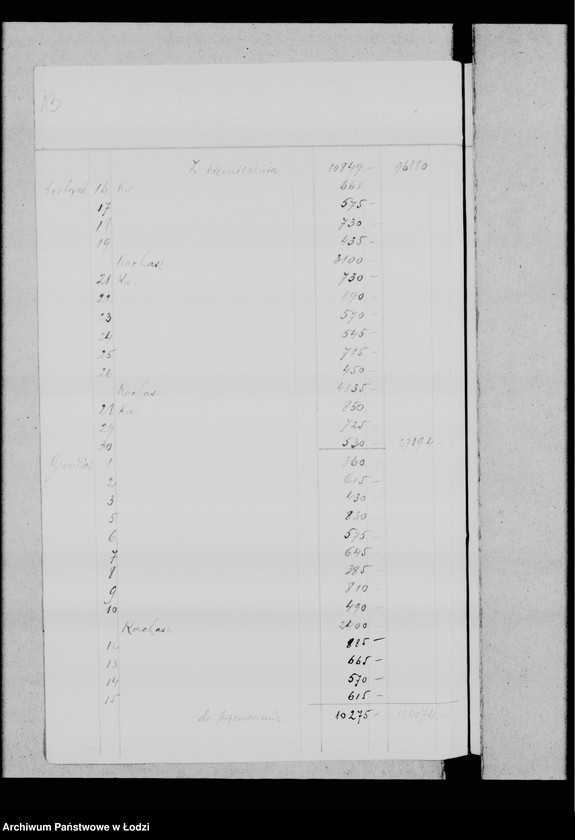 13
Z przeniesienia 10849 - 96880
Listopad 16 Kw. 665 -
17 575 -
18 730
19 435 -
Karkasz 3100 -
21 Kw. 730 -
22 890 -
23 570 -
24 545 -
25 785 -
26 450 -
4835 -
28 Kw. 850
29 725 -
30 530 - 27194 -
Grudzień 1 360 -
2 615 -
3 430
5 830 -
6 595 -
7 645 -
8 385 -
9 810 -
10 490 -
2400 -
12 885 -
13 665 -
14 570 -
15 615 -
do przeniesienia 10275 - 124074 -
Archiwum Państwowe w Łodzi